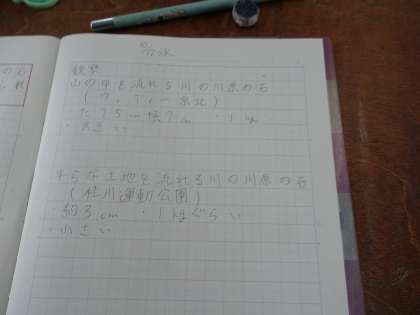 観察
山の中を流れる川の川原の石
たて5cm横7cm ・1kg
・大きい
平らな土地を流れる川の川原の石
(桂川運動公園)
・約3cm ・1kgぐらい
・小さい